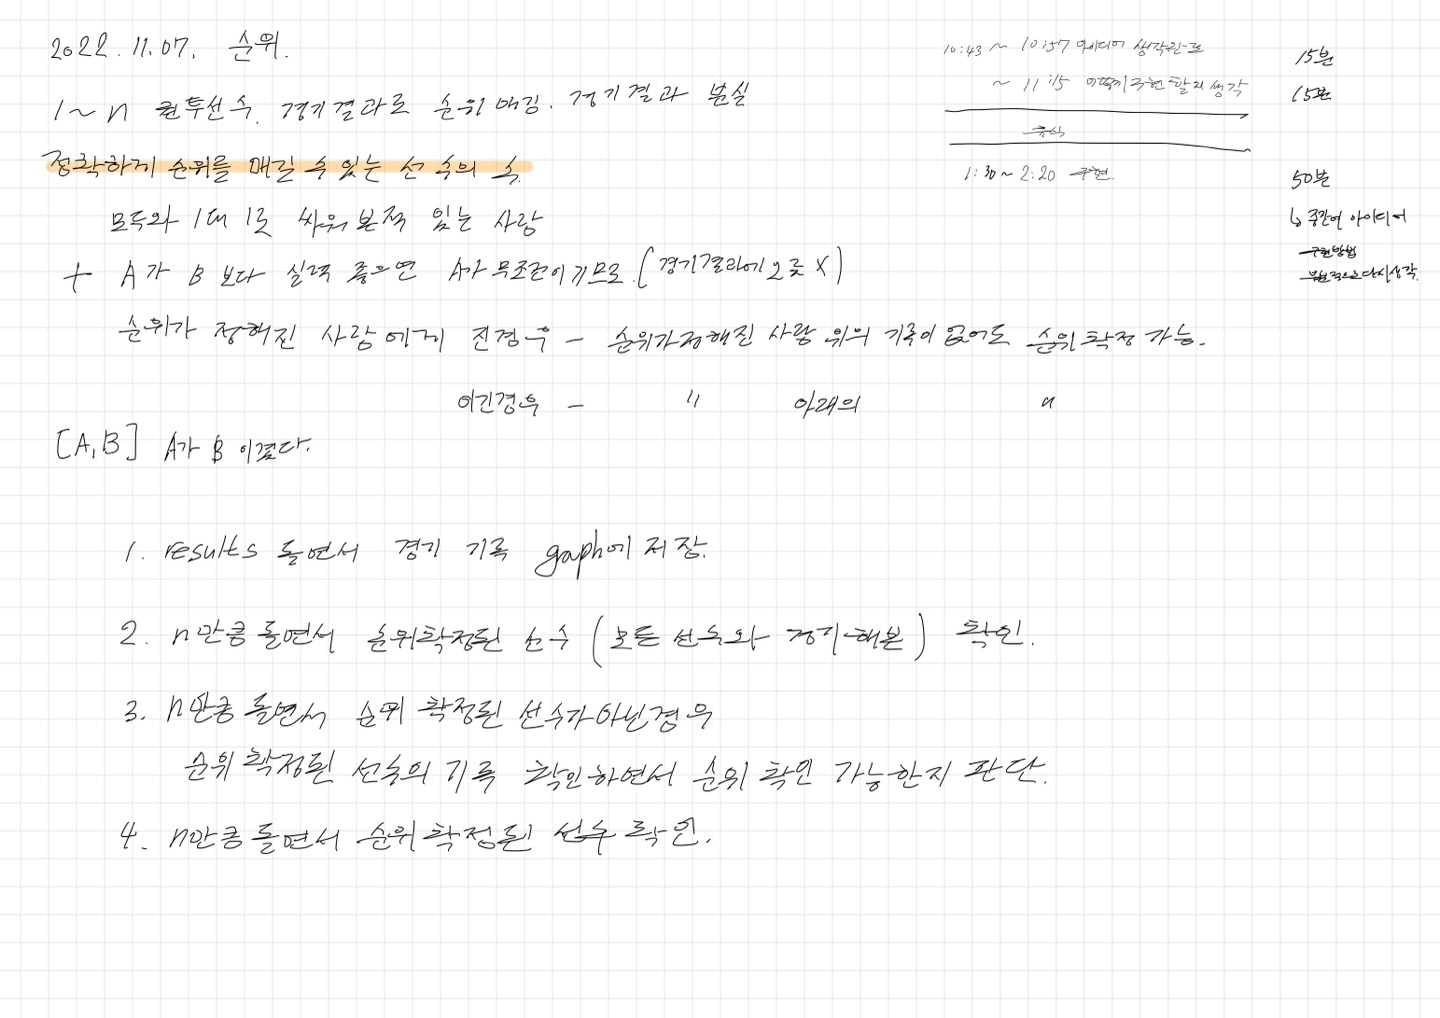 2022.11.07. 순위.
1~n 권투선수. 경기결과로 순위 매김. 경기결과 분실
정확하게 순위를 매길 수 있는 선수의 수
모두와 1대 1로 싸워본적 있는 사람
+ A가 B 보다 실력 좋으면 A가 무조건이기므로. (경기결과에 오류 X)
순위가 정해진 사람에게 진경우 - 순위가정해진 사람 위의 기록이 없어도 순위 확정 가능.
이긴경우 - " 아래의 "
[A,B] A가 B 이겼다.
1. results 돌면서 경기 기록 graph에 저장.
2. n만큼 돌면서 순위확정된 선수 (모든 선수와 경기해본) 확인.
3. n만큼 돌면서 순위 확정된 선수가아닌경우
순위 확정된 선수의 기록 확인하면서 순위 확인 가능한지 판단.
4. n만큼 돌면서 순위 확정된 선수 확인.
10:43 ~ 10:57 아이디어 생각완료 15분
~ 11:15 어떻게 구현 할지 생각 15분
휴식
1:30~2:20 구현. 50분
↳ 중간에 아이디어
구현방법
부분적으로다시생각.